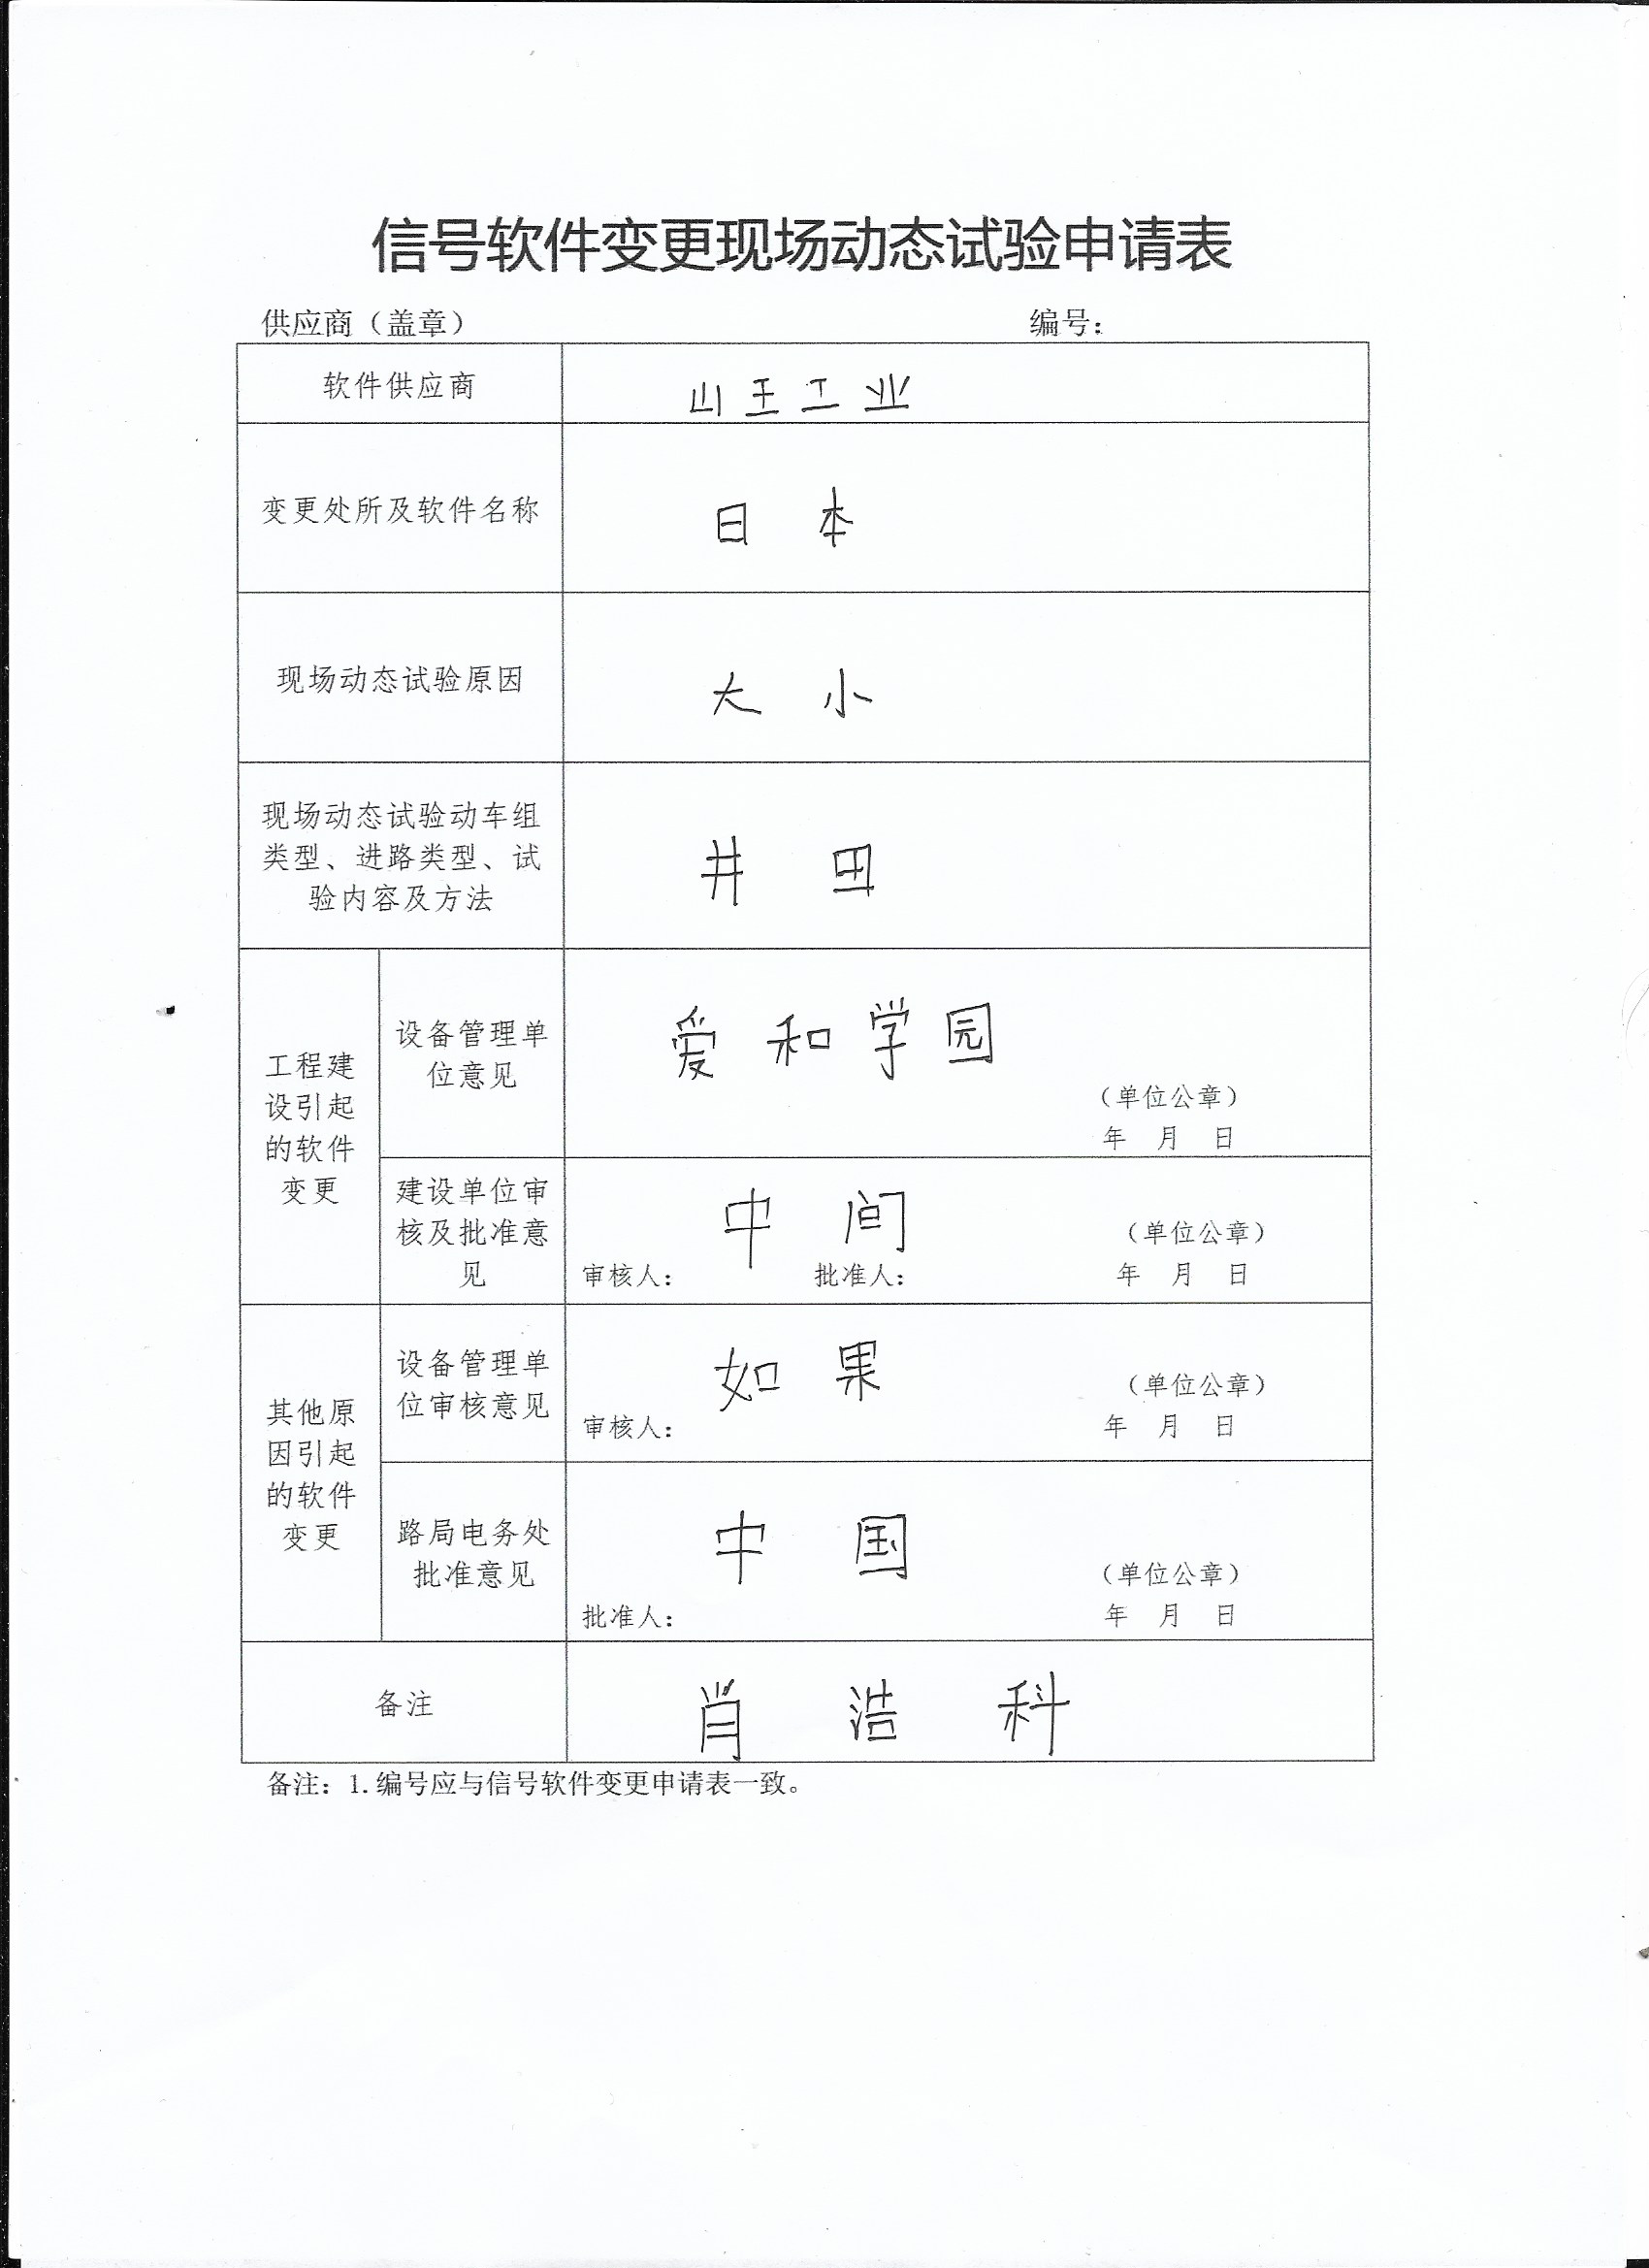 信号软件变更现场动态试验申请表
供应商（盖章） 编号：
软件供应商 山王工业
变更处所及软件名称 日本
现场动态试验原因 大小
现场动态试验动车组
类型、进路类型、试
验内容及方法
井田
工程建
设引起
的软件
变更
设备管理单
位意见
爱和学园
（单位公章）
年 月 日
建设单位审
核及批准意
见
中间
（单位公章）
审核人： 批准人： 年 月 日
其他原
因引起
的软件
变更
设备管理单
位审核意见
如果
（单位公章）
审核人： 年 月 日
路局电务处
批准意见
中国
（单位公章）
批准人： 年 月 日
备注 肖浩科
备注：1.编号应与信号软件变更申请表一致。